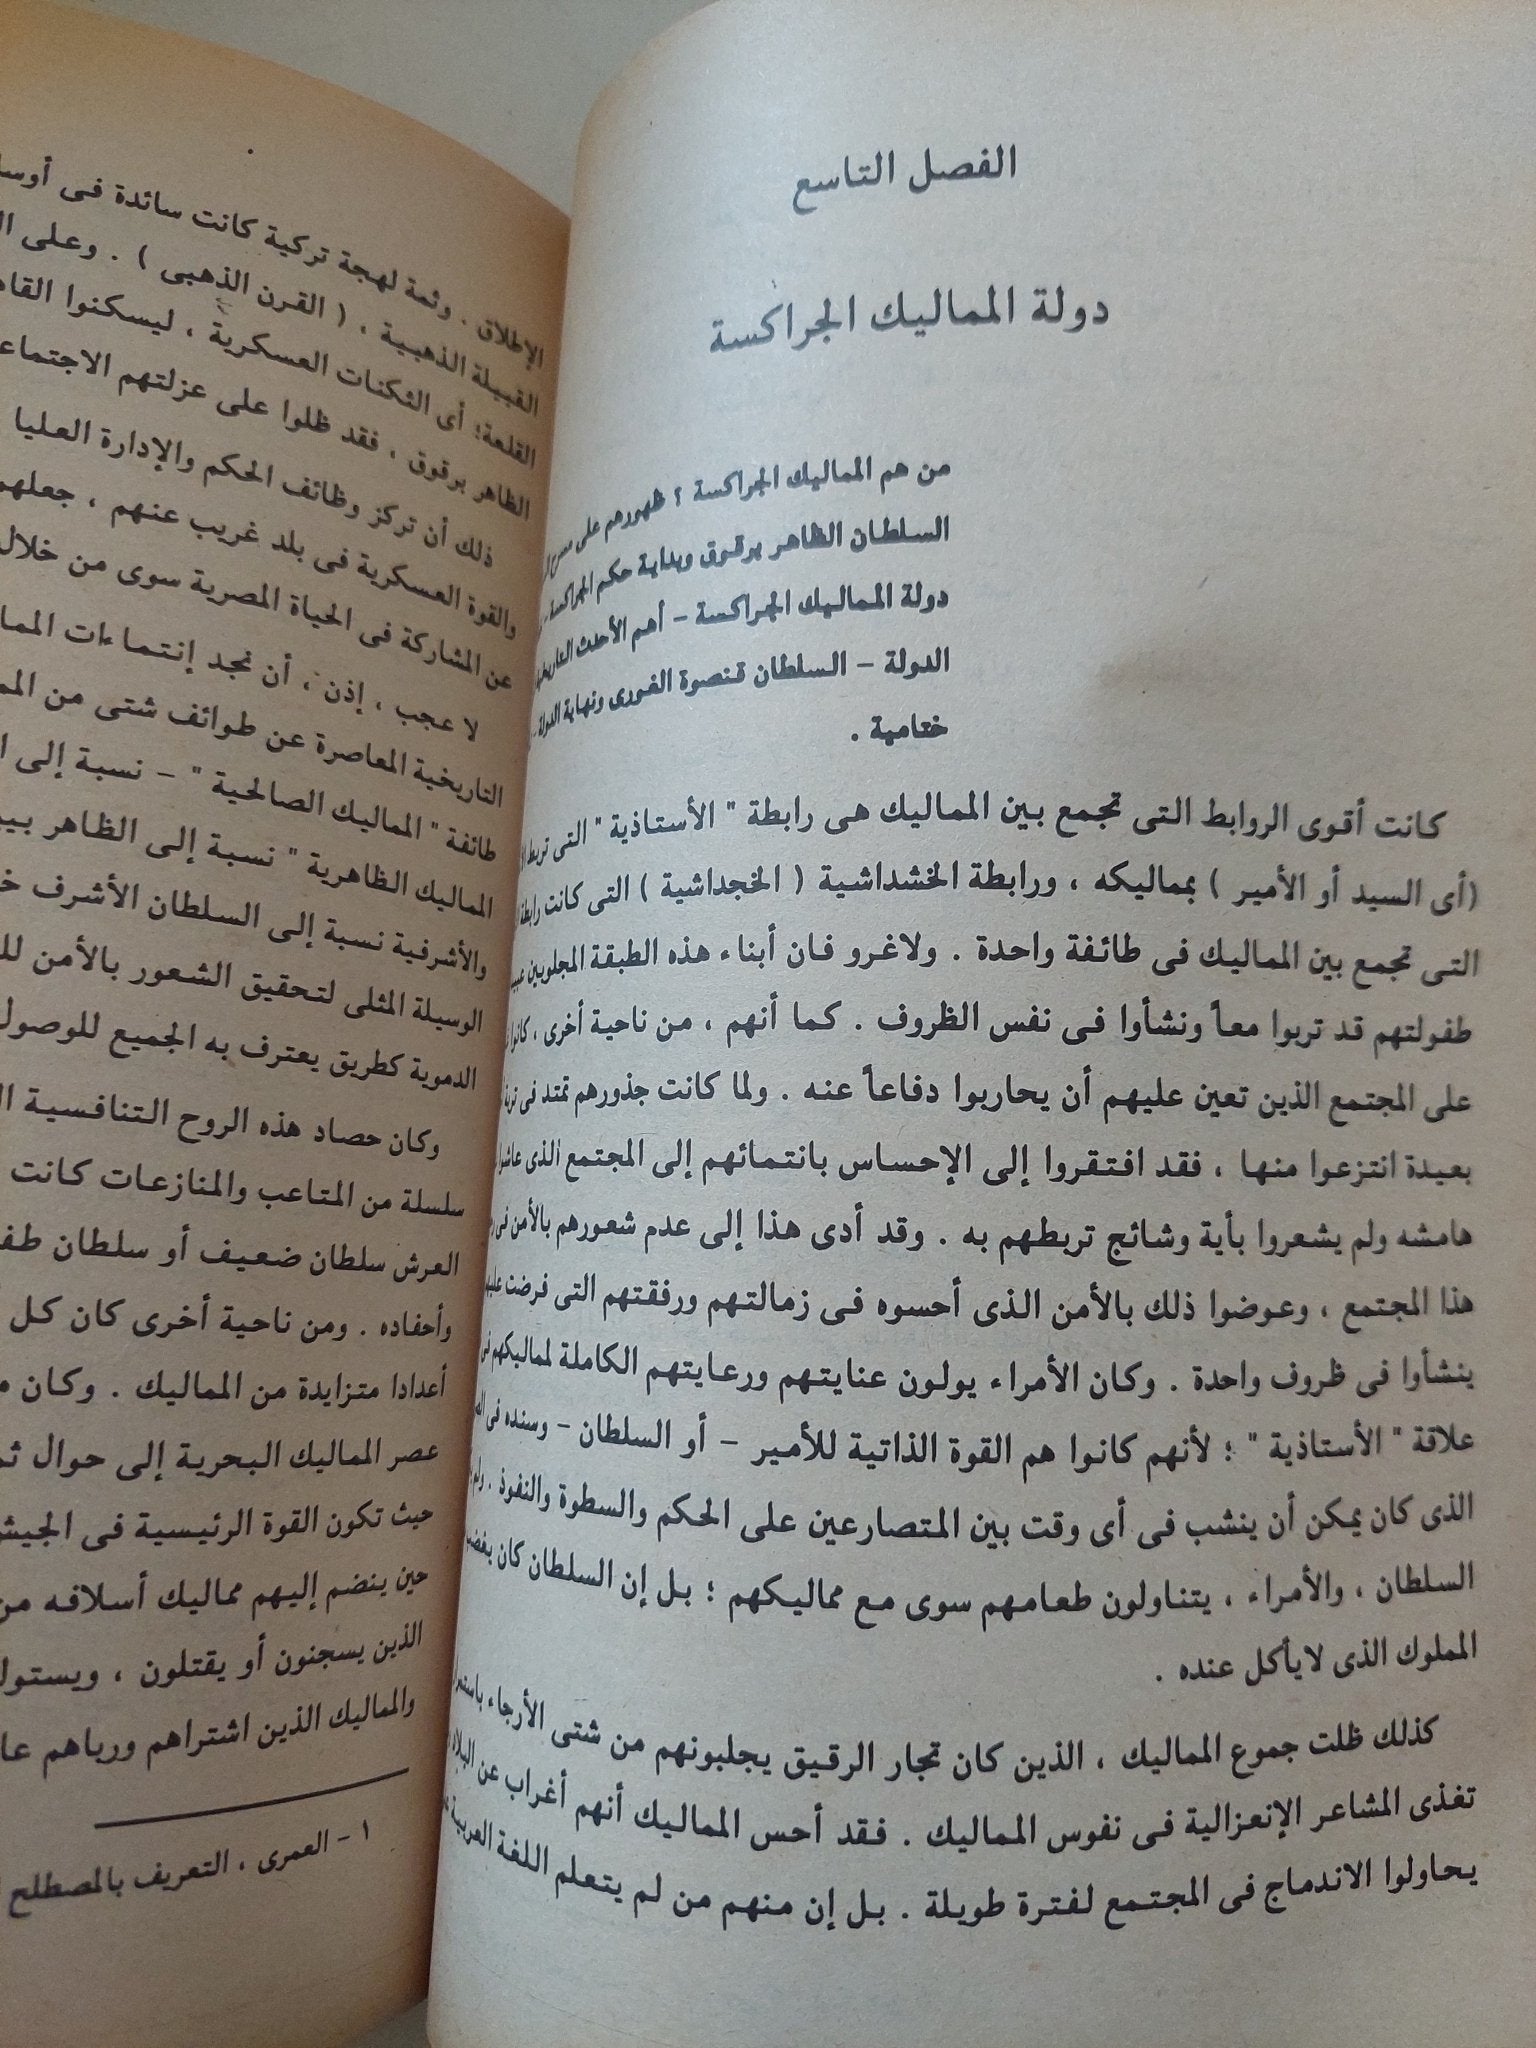 الفصل التاسع
دولة المماليك الجراكسة
من هم المماليك الجراكسة ؟ ظهورهم على مسرح
السلطان الظاهر برقوق وبداية حكم الجراكسة -
دولة المماليك الجراكسة - أهم الأحدث التاريخية
الدولة - السلطان قنصوة الغورى ونهاية الدولة -
ختامية .
كانت أقوى الروابط التى تجمع بين المماليك هى رابطة " الأستاذية " التى تربط
(أى السيد أو الأمير ) بمماليكه ، ورابطة الخشداشية ( الخجداشية ) التى كانت رابطة
التى تجمع بين المماليك فى طائفة واحدة . ولاغرو فان أبناء هذه الطبقة المجلوبين عبيد
طفولتهم قد تربوا معاً ونشأوا فى نفس الظروف . كما أنهم ، من ناحية أخرى ، كانوا
على المجتمع الذين تعين عليهم أن يحاربوا دفاعاً عنه . ولما كانت جذورهم تمتد فى
بعيدة انتزعوا منها ، فقد افتقروا إلى الإحساس بانتمائهم إلى المجتمع الذى عاشوا
هامشه ولم يشعروا بأية وشائج تربطهم به . وقد أدى هذا إلى عدم شعورهم بالأمن فى
هذا المجتمع ، وعوضوا ذلك بالأمن الذى أحسوه فى زمالتهم ورفقتهم التى فرضت عليهم
ينشأوا فى ظروف واحدة . وكان الأمراء يولون عنايتهم ورعايتهم الكاملة لمماليكهم فى
علاقة " الأستاذية " ؛ لأنهم كانوا هم القوة الذاتية للأمير - أو السلطان - وسنده فى
الذى كان يمكن أن ينشب فى أى وقت بين المتصارعين على الحكم والسطوة والنفوذ . ولم
السلطان ، والأمراء ، يتناولون طعامهم سوى مع مماليكهم ؛ بل إن السلطان كان يغضب
المملوك الذى لايأكل عنده .
كذلك ظلت جموع المماليك ، الذين كان تجار الرقيق يجلبونهم من شتى الأرجاء
تغذى المشاعر الإنعزالية فى نفوس المماليك . فقد أحس المماليك أنهم أغراب عن البلاد
يحاولوا الاندماج فى المجتمع لفترة طويلة . بل إن منهم من لم يتعلم اللغة العربية
الإطلاق . وثمة لهجة تركية كانت سائدة فى
القبيلة الذهبية ، ( القرن الذهبى ) . وعلى
القلعة؛ أى الثكنات العسكرية ، ليسكنوا
الظاهر برقوق ، فقد ظلوا على عزلتهم
ذلك أن تركز وظائف الحكم والإدارة العليا
والقوة العسكرية فى بلد غريب عنهم ، جعلهم
عن المشاركة فى الحياة المصرية سوى من خلال
لا عجب ، إذن ، أن نجد إنتماءات
التاريخية المعاصرة عن طوائف شتى من
طائفة " المماليك الصالحية " - نسبة إلى
المماليك الظاهرية " نسبة إلى الظاهر
والأشرفية نسبة إلى السلطان الأشرف
الوسيلة المثلى لتحقيق الشعور بالأمن
الدموية كطريق يعترف به الجميع للوصول
وكان حصاد هذه الروح التنافسية
سلسلة من المتاعب والمنازعات كانت
العرش سلطان ضعيف أو سلطان
وأحفاده . ومن ناحية أخرى كان كل
أعدادا متزايدة من المماليك . وكان
عصر المماليك البحرية إلى حوال
حيث تكون القوة الرئيسية فى الجيش
حين ينضم إليهم مماليك أسلافه من
الذين يسجنون أو يقتلون ،
والمماليك الذين اشتراهم ورباهم
١ - العمرى ، التعريف بالمصطلح